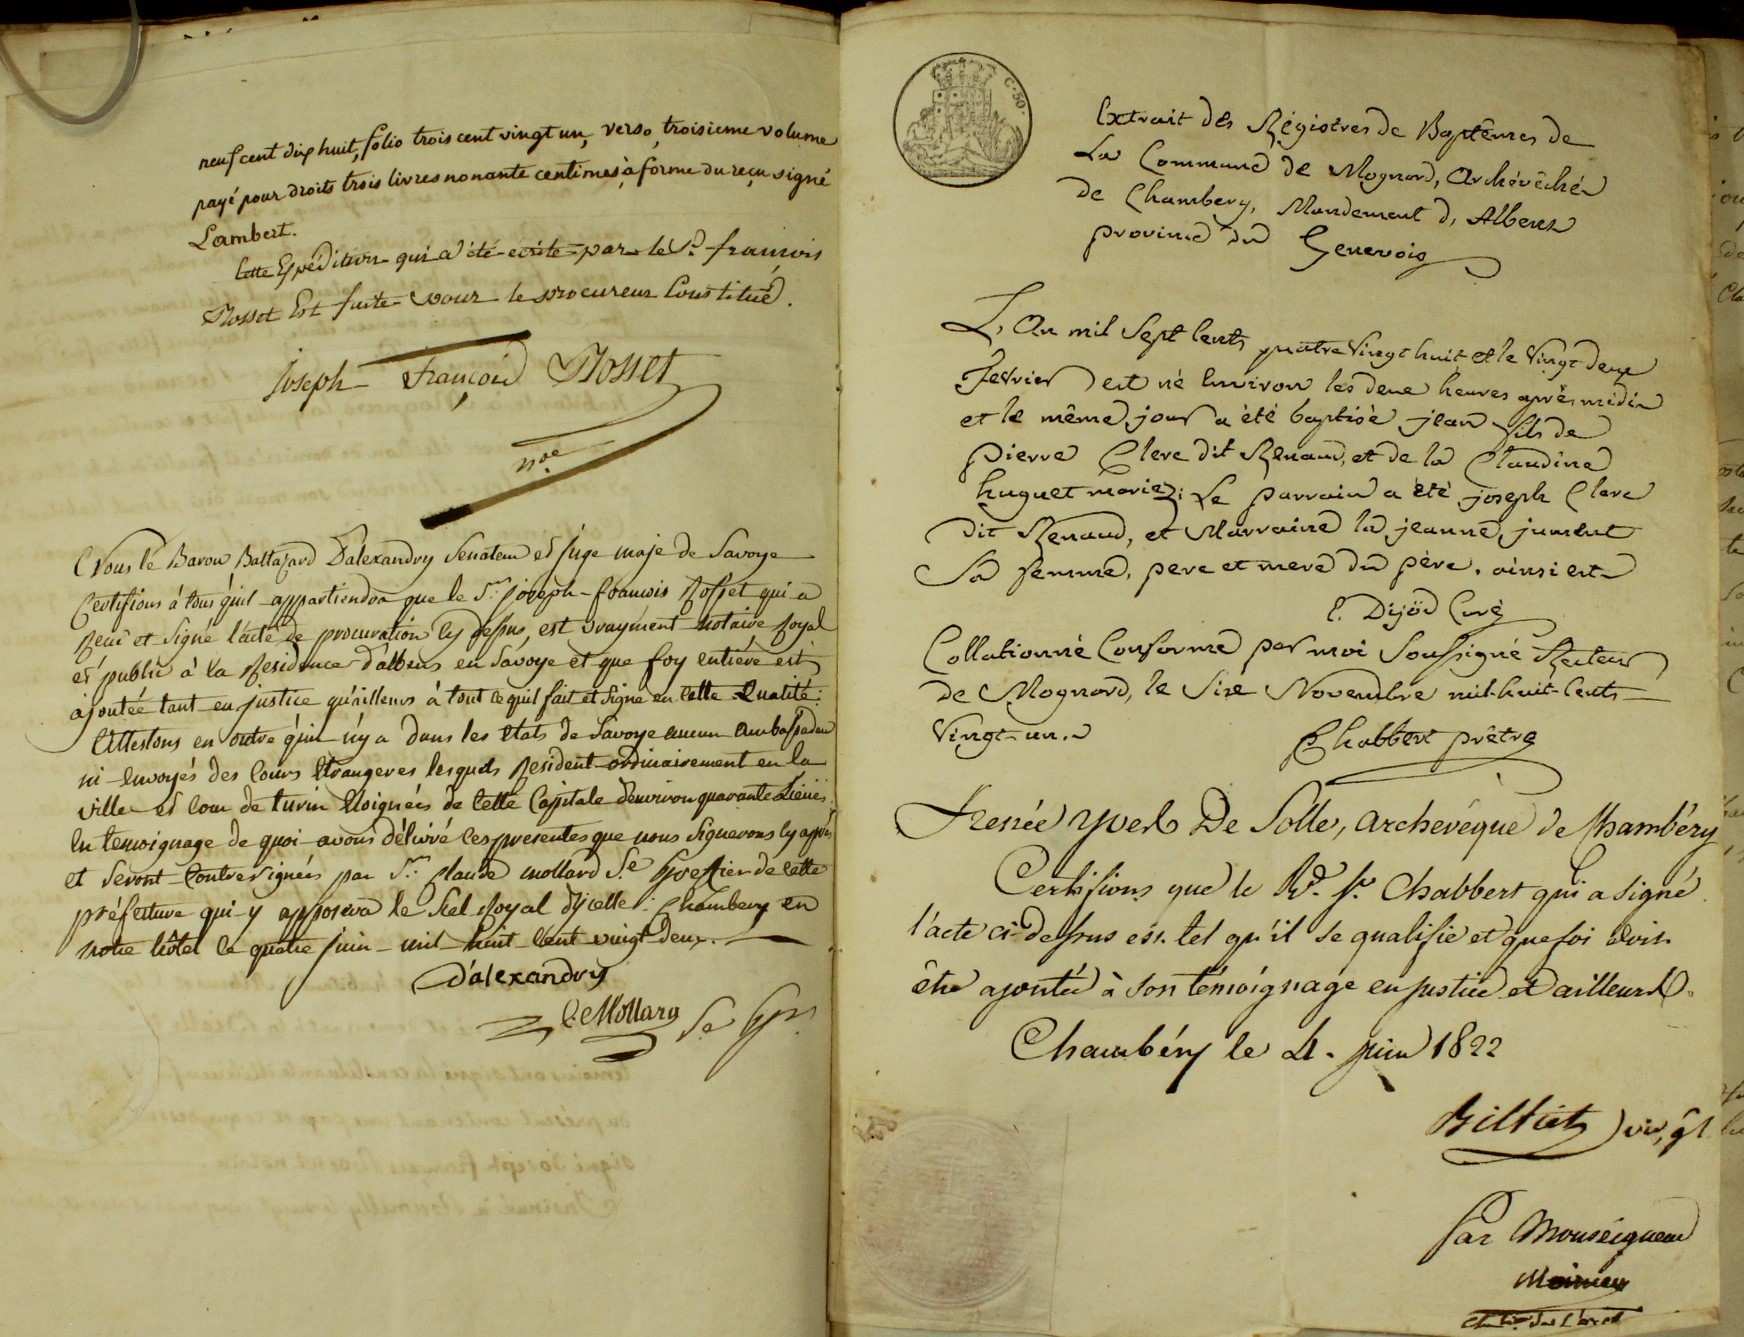 neuf cent dix huit, folio trois cent vingt un, verso, troisieme volume
payé pour droits trois livres nonante centimes, à forme du reçu signé
Lambert.
Cette Expédition qui a été ecrite par le Sr. francois
Rosset Est faite pour le procureur Constitué.
Joseph François Rosset
nre
Nous le Baron Baltazard D'alexandry Senateur et Juge maje de Savoye
Certifions à tous qu'il appartiendra que le Sr. joseph-francois Rosset qui a
Recu et signé l'acte de procuration cy dessus, est vrayment notaire Royal
et public à la Residence d'albens en Savoye et que foy entière est
ajoutée tant en justice qu'ailleurs à tout ce quil fait et signe en cette Qualité:
Attestons en outre qu'il n'y a dans les etats de Savoye aucun Ambassadeur
ni Envoyés des Cours Etrangeres lesquels Resident ordinairement en la
ville et cour de turin Eloignées de cette Capitale d'environ quarante Lieües.
En temoignage de quoi avons délivré ces presentes que nous signerons cy après
et seront Contresignées par Sr. Claude mollard Se. Greffier de cette
préfecture qui y apposera le Scel Royal d'ycelle: Chambery en
notre hôtel le quatre juin mil huit cent vingt deux.
D'alexandry
C Mollard Se Gr.
C. 50.
Extrait des Régistres de Baptêmes de
La Commune de Mognard, Archévêché
de Chambery, Mandement d, Albens
province du Genevois
L, An mil Sept Cents quatre Vingt huit et le Vingt deux
Février est né Environ les deux heures après midi
et le même jour a été baptisé jean fils de
pierre Clerc dit Renaud, et de la Claudine
huguet mariéz; Le parrain a été joseph Clerc
dit Renaud, et Marraine la jeanne jument
Sa femme, pere et mere du père. ainsi est
C. Dijod Curé
Collationné Conforme par moi Soussigné Recteur
de Mognard, le Sixe Novembre mil-huit-Cents
Vingt-un.
Chabbert prêtre
Irenée Yves De Solle, archevêque de Chambéry
Certifions que le Rd. Sr. Chabbert qui a signé
l'acte ci-dessus est tel qu'il se qualifie et que foi doit
être ajoutée à son témoignage en justice et ailleurs.
Chambéry le 4. juin 1822
Billiet vic, gl
Par Monseigneur